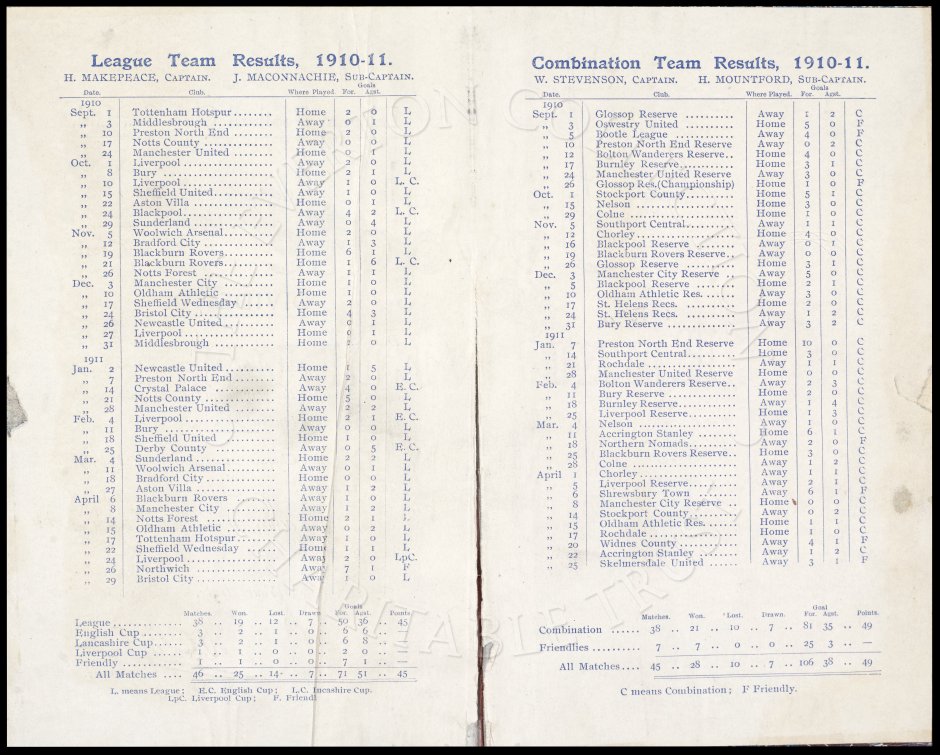 League Team Results, 1910-11.
H. MAKEPEACE, CAPTAIN. J. MACONNACHIE, SUB-CAPTAIN.
Goals
Date. Club. Where Played. For. Agst.
1910
Sept. 1 Tottenham Hotspur........ Home 2 0 L
„ 3 Middlesbrough ............ Away 0 1 L
„ 10 Preston North End ........ Home 2 0 L
„ 17 Notts County ............ Away 0 0 L
„ 24 Manchester United ........ Home 0 1 L
Oct. 1 Liverpool .................. Away 2 0 L
„ 8 Bury ........................ Home 2 1 L
„ 10 Liverpool .................. Away 1 0 L. C.
„ 15 Sheffield United............ Away 1 0 L
„ 22 Aston Villa ............... Home 1 0 L
„ 24 Blackpool .................. Away 4 2 L. C.
„ 29 Sunderland ............... Away 0 4 L
Nov. 5 Woolwich Arsenal......... Home 2 0 L
„ 12 Bradford City ............ Away 1 3 L
„ 19 Blackburn Rovers......... Home 6 1 L
„ 21 Blackburn Rovers......... Home 1 6 L. C.
„ 26 Notts Forest ............ Away 1 1 L
Dec. 3 Manchester City ......... Home 1 0 L
„ 10 Oldham Athletic ......... Home 1 0 L
„ 17 Sheffield Wednesday ...... Away 2 0 L
„ 24 Bristol City ............... Home 4 3 L
„ 26 Newcastle United ......... Away 0 1 L
„ 27 Liverpool .................. Home 0 1 L
„ 31 Middlesbrough ............ Home 2 0 L
1911
Jan. 2 Newcastle United ......... Home 1 5 L
„ 7 Preston North End ........ Away 2 0 L
„ 14 Crystal Palace ............ Away 4 0 E. C.
„ 21 Notts County ............ Home 5 0 L
„ 28 Manchester United ...... Away 2 2 L
Feb. 4 Liverpool .................. Home 2 1 E. C.
„ 11 Bury ........................ Away 0 0 L
„ 18 Sheffield United ......... Home 1 0 L
„ 25 Derby County ............ Away 0 5 E. C.
Mar. 4 Sunderland ............... Home 2 2 L
„ 11 Woolwich Arsenal......... Away 0 1 L
„ 18 Bradford City ............ Home 0 0 L
„ 27 Aston Villa ............... Away 1 2 L
April 6 Blackburn Rovers ......... Away 1 0 L
„ 8 Manchester City ......... Away 1 2 L
„ 14 Notts Forest ............ Home 2 1 L
„ 15 Oldham Athletic ......... Away 0 2 L
„ 17 Tottenham Hotspur...... Away 1 0 L
„ 22 Sheffield Wednesday ...... Home 1 1 L
„ 24 Liverpool .................. Away 2 0 LpC.
„ 26 Northwich ............... Away 7 1 F
„ 29 Bristol City ............... Away 1 0 L
Goals
Matches. Won. Lost. Drawn For. Agst. Points
League ............... 38 .. 19 .. 12 .. 7 .. 50 36 .. 45
English Cup......... 3 .. 2 .. 1 .. 0 .. 6 6 .. —
Lancashire Cup...... 3 .. 2 .. 1 .. 0 .. 6 8 .. —
Liverpool Cup ...... 1 .. 1 .. 0 .. 0 .. 2 0 .. —
Friendly............... 1 .. 1 .. 0 .. 0 .. 7 1 .. —
All Matches .... 46 .. 25 .. 14 .. 7 .. 71 51 .. 45
L. means League; E.C. English Cup; L.C. Lncashire Cup.
LpC. Liverpool Cup; F. Friendl
Combination Team Results, 1910-11.
W. STEVENSON, CAPTAIN. H. MOUNTFORD, SUB-CAPTAIN.
Goals
Date. Club. Where Played. For. Agst.
1910
Sept. 1 Glossop Reserve ............ Away 1 2 C
„ 3 Oswestry United ............ Home 5 0 F
„ 5 Bootle League ............... Away 4 0 F
„ 10 Preston North End Reserve Away 0 2 C
„ 12 Bolton Wanderers Reserve.. Home 4 0 C
„ 17 Burnley Reserve............ Home 3 1 C
„ 24 Manchester United Reserve Away 3 0 C
„ 26 Glossop Res.(Championship) Home 1 0 F
Oct. 1 Stockport County............ Home 5 1 C
„ 15 Nelson ..................... Home 3 0 C
„ 29 Colne ........................ Home 1 0 C
Nov. 5 Southport Central............ Away 1 1 C
„ 12 Chorley ..................... Home 4 0 C
„ 16 Blackpool Reserve ......... Away 0 1 C
„ 19 Blackburn Rovers Reserve.. Away 0 0 C
„ 26 Glossop Reserve ............ Home 3 1 C
Dec. 3 Manchester City Reserve ... Away 5 0 C
„ 5 Blackpool Reserve ......... Home 2 1 C
„ 10 Oldham Athletic Res. ...... Away 3 0 C
„ 17 St. Helens Recs. ............ Home 2 0 C
„ 24 St. Helens Recs. ............ Away 1 2 C
„ 31 Bury Reserve ............... Away 3 2 C
1911
Jan. 7 Preston North End Reserve Home 10 0 C
„ 14 Southport Central............ Home 3 0 C
„ 21 Rochdale ..................... Away 1 1 C
„ 28 Manchester United Reserve Home 0 0 C
Feb. 4 Bolton Wanderers Reserve.. Away 2 3 C
„ 11 Bury Reserve ............... Home 2 0 C
„ 18 Burnley Reserve............ Away 1 4 C
„ 25 Liverpool Reserve............ Home 1 3 C
Mar. 4 Nelson ..................... Away 1 0 C
„ 11 Accrington Stanley ......... Home 6 1 C
„ 18 Northern Nomads............ Away 2 0 F
„ 25 Blackburn Rovers Reserve.. Home 3 0 C
„ 28 Colne ........................ Away 1 2 C
April 1 Chorley ..................... Away 1 1 C
„ 5 Liverpool Reserve............ Away 2 1 C
„ 6 Shrewsbury Town ......... Away 6 1 F
„ 8 Manchester City Reserve ... Home 0 0 C
„ 14 Stockport County............ Away 0 2 C
„ 15 Oldham Athletic Res. ...... Home 1 1 C
„ 17 Rochdale ..................... Home 1 0 C
„ 20 Widnes County ............ Away 4 1 F
„ 22 Accrington Stanley ......... Away 1 2 C
„ 25 Skelmersdale United ...... Away 3 1 F
Goal
Matches. Won. Lost. Drawn. For. Agst. Points.
Combination ...... 38 .. 21 .. 10 .. 7 .. 81 35 .. 49
Friendlies ......... 7 .. 7 .. 0 .. 0 .. 25 3 .. —
All Matches .... 45 .. 28 .. 10 .. 7 .. 106 38 .. 49
C means Combination; F Friendly.